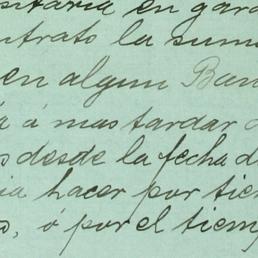 sitaria en gara
ntrato la suma
en algun Ban
á mas tardar
desde la fecha d
ia hacer por tiem
, ó por el tiemp